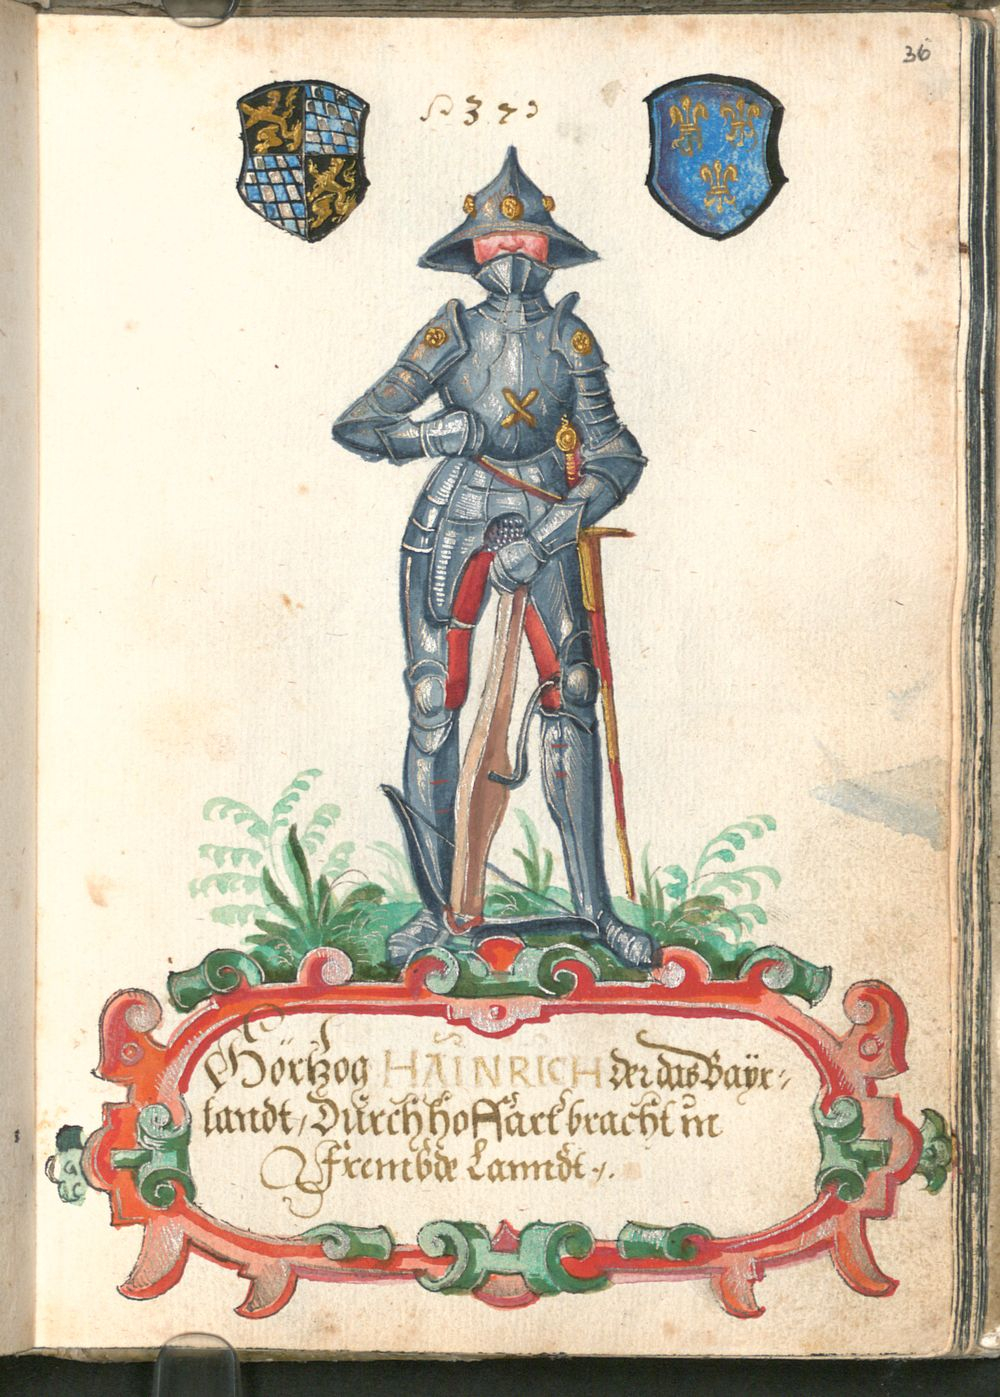 36
Hörtzog HAINRICH der das Baÿr-
landt, Durch hoffart bracht in
Frembde Lanndt.